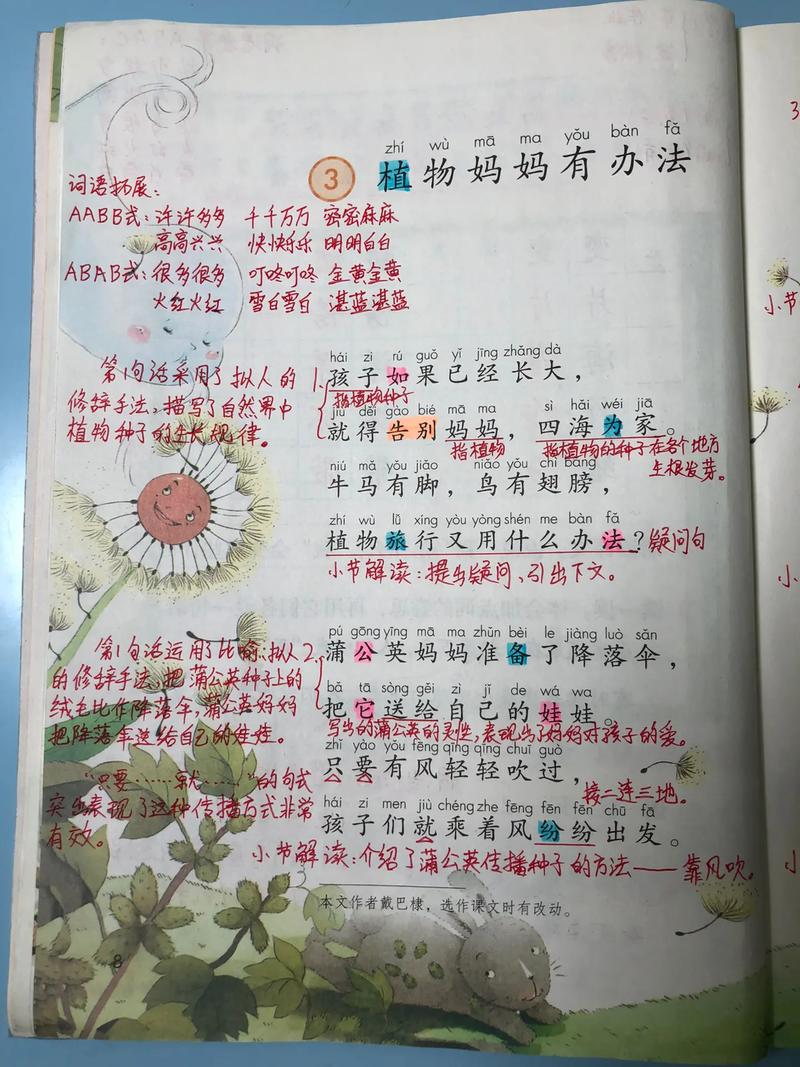 zhí wù mā ma yǒu bàn fǎ
3 植物妈妈有办法
词语拓展：
AABB式：许许多多 千千万万 密密麻麻
高高兴兴 快快乐乐 明明白白
ABAB式：很多很多 叮咚叮咚 金黄金黄
火红火红 雪白雪白 湛蓝湛蓝
第1句话采用了拟人的
修辞手法，描写了自然界中
植物种子的生长规律。
hái zi rú guǒ yǐ jīng zhǎng dà
1. 孩子如果已经长大，
指植物种子
jiù děi gào bié mā ma sì hǎi wéi jiā
就得告别妈妈，四海为家。
指植物 指植物的种子在各个地方
生根发芽。
niú mǎ yǒu jiǎo niǎo yǒu chì bǎng
牛马有脚，鸟有翅膀，
zhí wù lǚ xíng yòu yòng shén me bàn fǎ
植物旅行又用什么办法？疑问句
小节解读：提出疑问，引出下文。
第1句话运用了比喻、拟人
的修辞手法，把蒲公英种子上的
绒毛比作降落伞，蒲公英妈妈
把降落伞送给自己的娃娃。
pú gōng yīng mā ma zhǔn bèi le jiàng luò sǎn
2 蒲公英妈妈准备了降落伞，
bǎ tā sòng gěi zì jǐ de wá wa
把它送给自己的娃娃。
写出的蒲公英的灵性，表现出了妈妈对孩子的爱。
zhǐ yào yǒu fēng qīng qīng chuī guò
只要有风轻轻吹过，
接二连三地。
“只要……就……”的句式
突出表现了这种传播方式非常
有效。
hái zi men jiù chéng zhe fēng fēn fēn chū fā
孩子们就乘着风纷纷出发。
小节解读：介绍了蒲公英传播种子的方法——靠风吹。
本文作者戴巴棣，选作课文时有改动。
8
小节